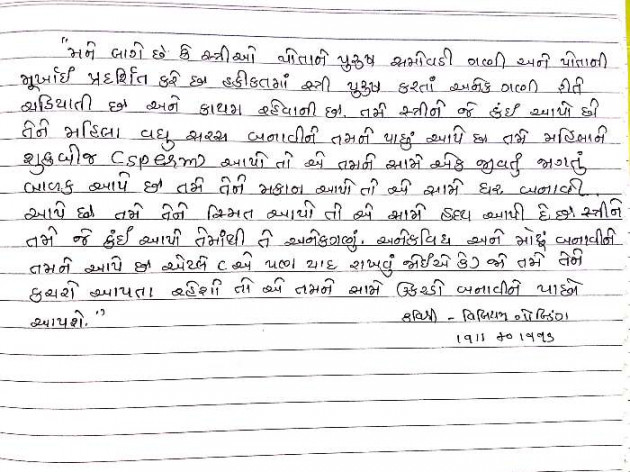 "મને લાગે છે કે સ્ત્રીઓ પોતાને પુરુષ સમોવડી ગણી અને પોતાની
મૂર્ખાઈ પ્રદર્શિત કરે છે. હકીકતમાં સ્ત્રી પુરુષ કરતાં અનેક ગણી રીતે
ચડિયાતી છે. અને કાયમ રહેવાની છે. તમે સ્ત્રીને જે કંઈ આપો છો
તેને મહિલા વધુ સરસ બનાવીને તમને પાછું આપે છે. તમે મહિલાને
શુક્રબીજ (sperm) આપો તો એ તમને સામે એક જીવતું જાગતું
બાળક આપે છે. તમે તેને મકાન આપો તો એ સામે ઘર બનાવી
આપે છે. તમે તેને સ્મિત આપો તો એ સામે હૃદય આપી દે છે. સ્ત્રીને
તમે જે કંઈ આપો તેમાંથી તે અનેકગણું. અનેકવિધ અને મોટું બનાવીને
તમને આપે છે. એટલે (એ પણ યાદ રાખવું જોઈએ કે) જો તમે તેને
કચરો આપતા રહેશો તો એ તમને સામે ઉકરડો બનાવીને પાછો
આપશે."
કવિશ્રી - વિલિયમ ગોલ્ડિંગ
૧૯૧૧ થી ૧૯૯૩